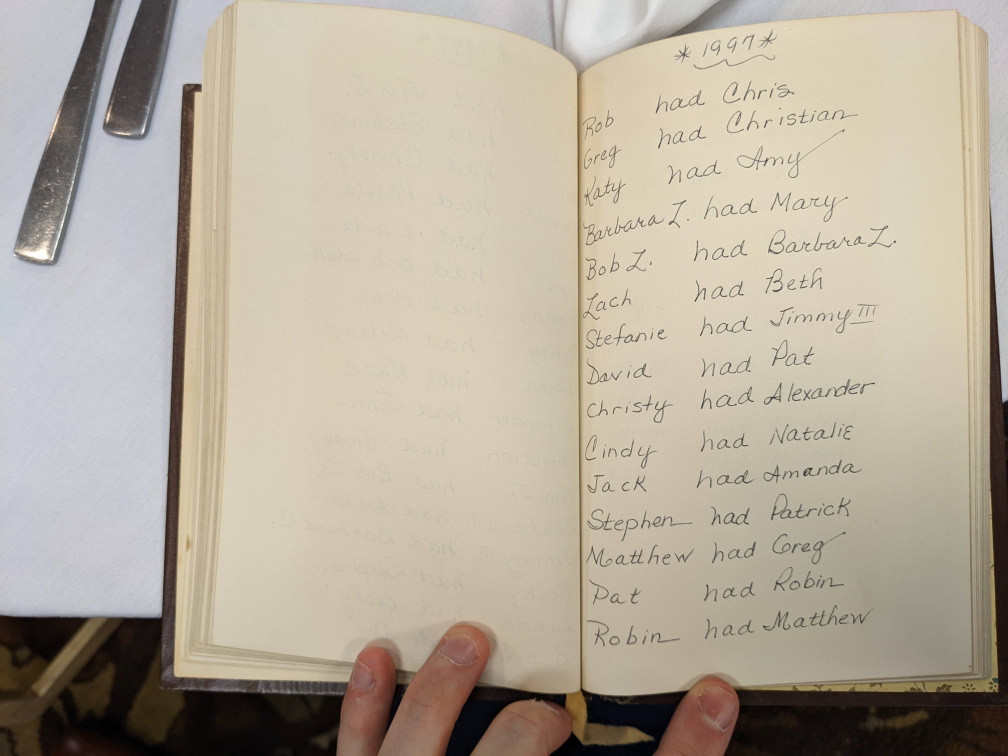 * 1997 *
Rob had Chris
Greg had Christian
Katy had Amy
Barbara Z. had Mary
Bob Z. had Barbara Z.
Zach had Beth
Stefanie had Jimmy III
David had Pat
Christy had Alexander
Cindy had Natalie
Jack had Amanda
Stephen had Patrick
Matthew had Greg
Pat had Robin
Robin had Matthew